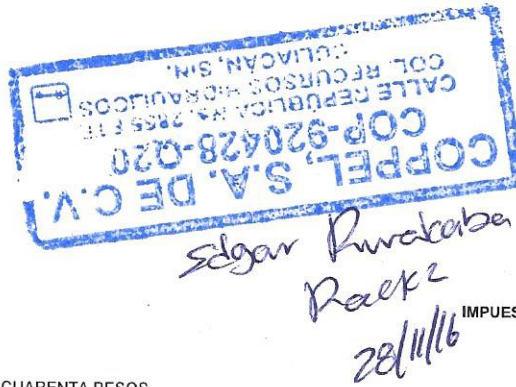 COPPEL, S.A. DE C.V.
COP-920428-Q20
CALLE REPUBLICA No. 2855 PTE.
COL. RECURSOS HIDRAULICOS
CULIACAN, SIN.
Edgar
28/11/16
IMPUES
CUARENTA PESOS